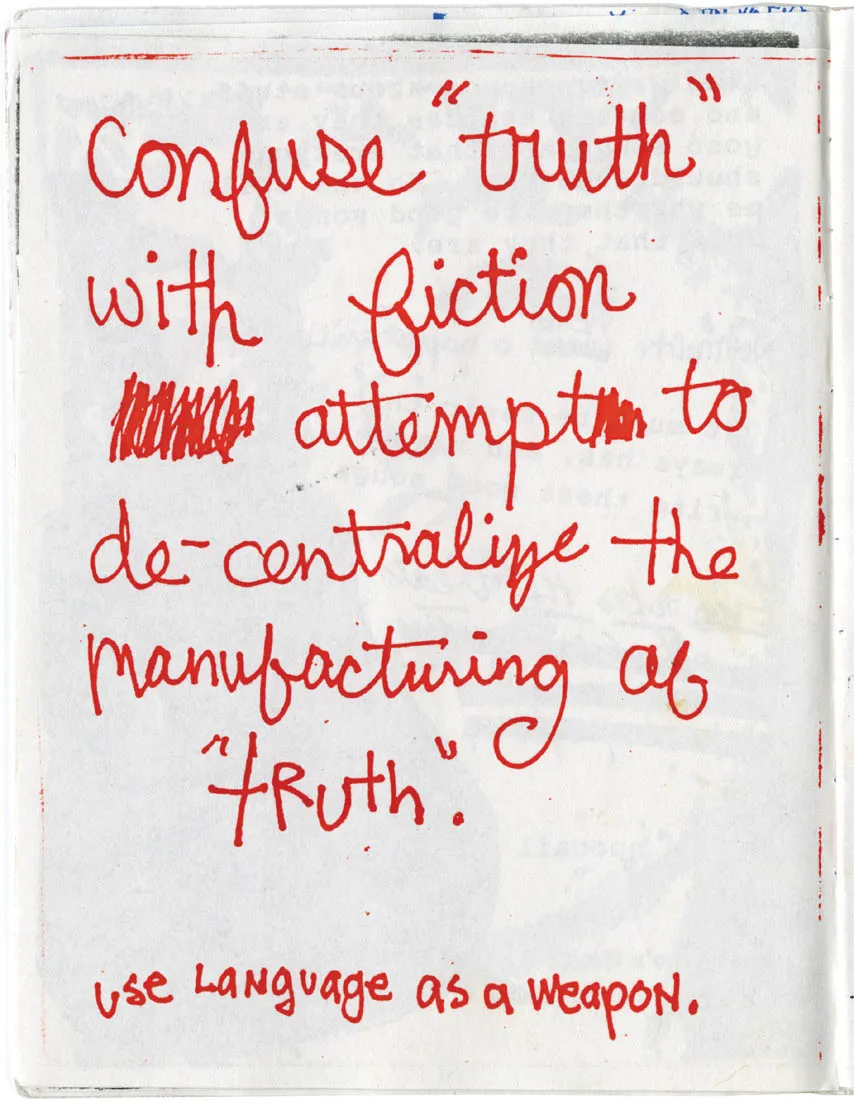 Confuse "truth"
with fiction
attempt to
de-centralize the
manufacturing of
"tRuth".
use LaNguage as a weapoN.